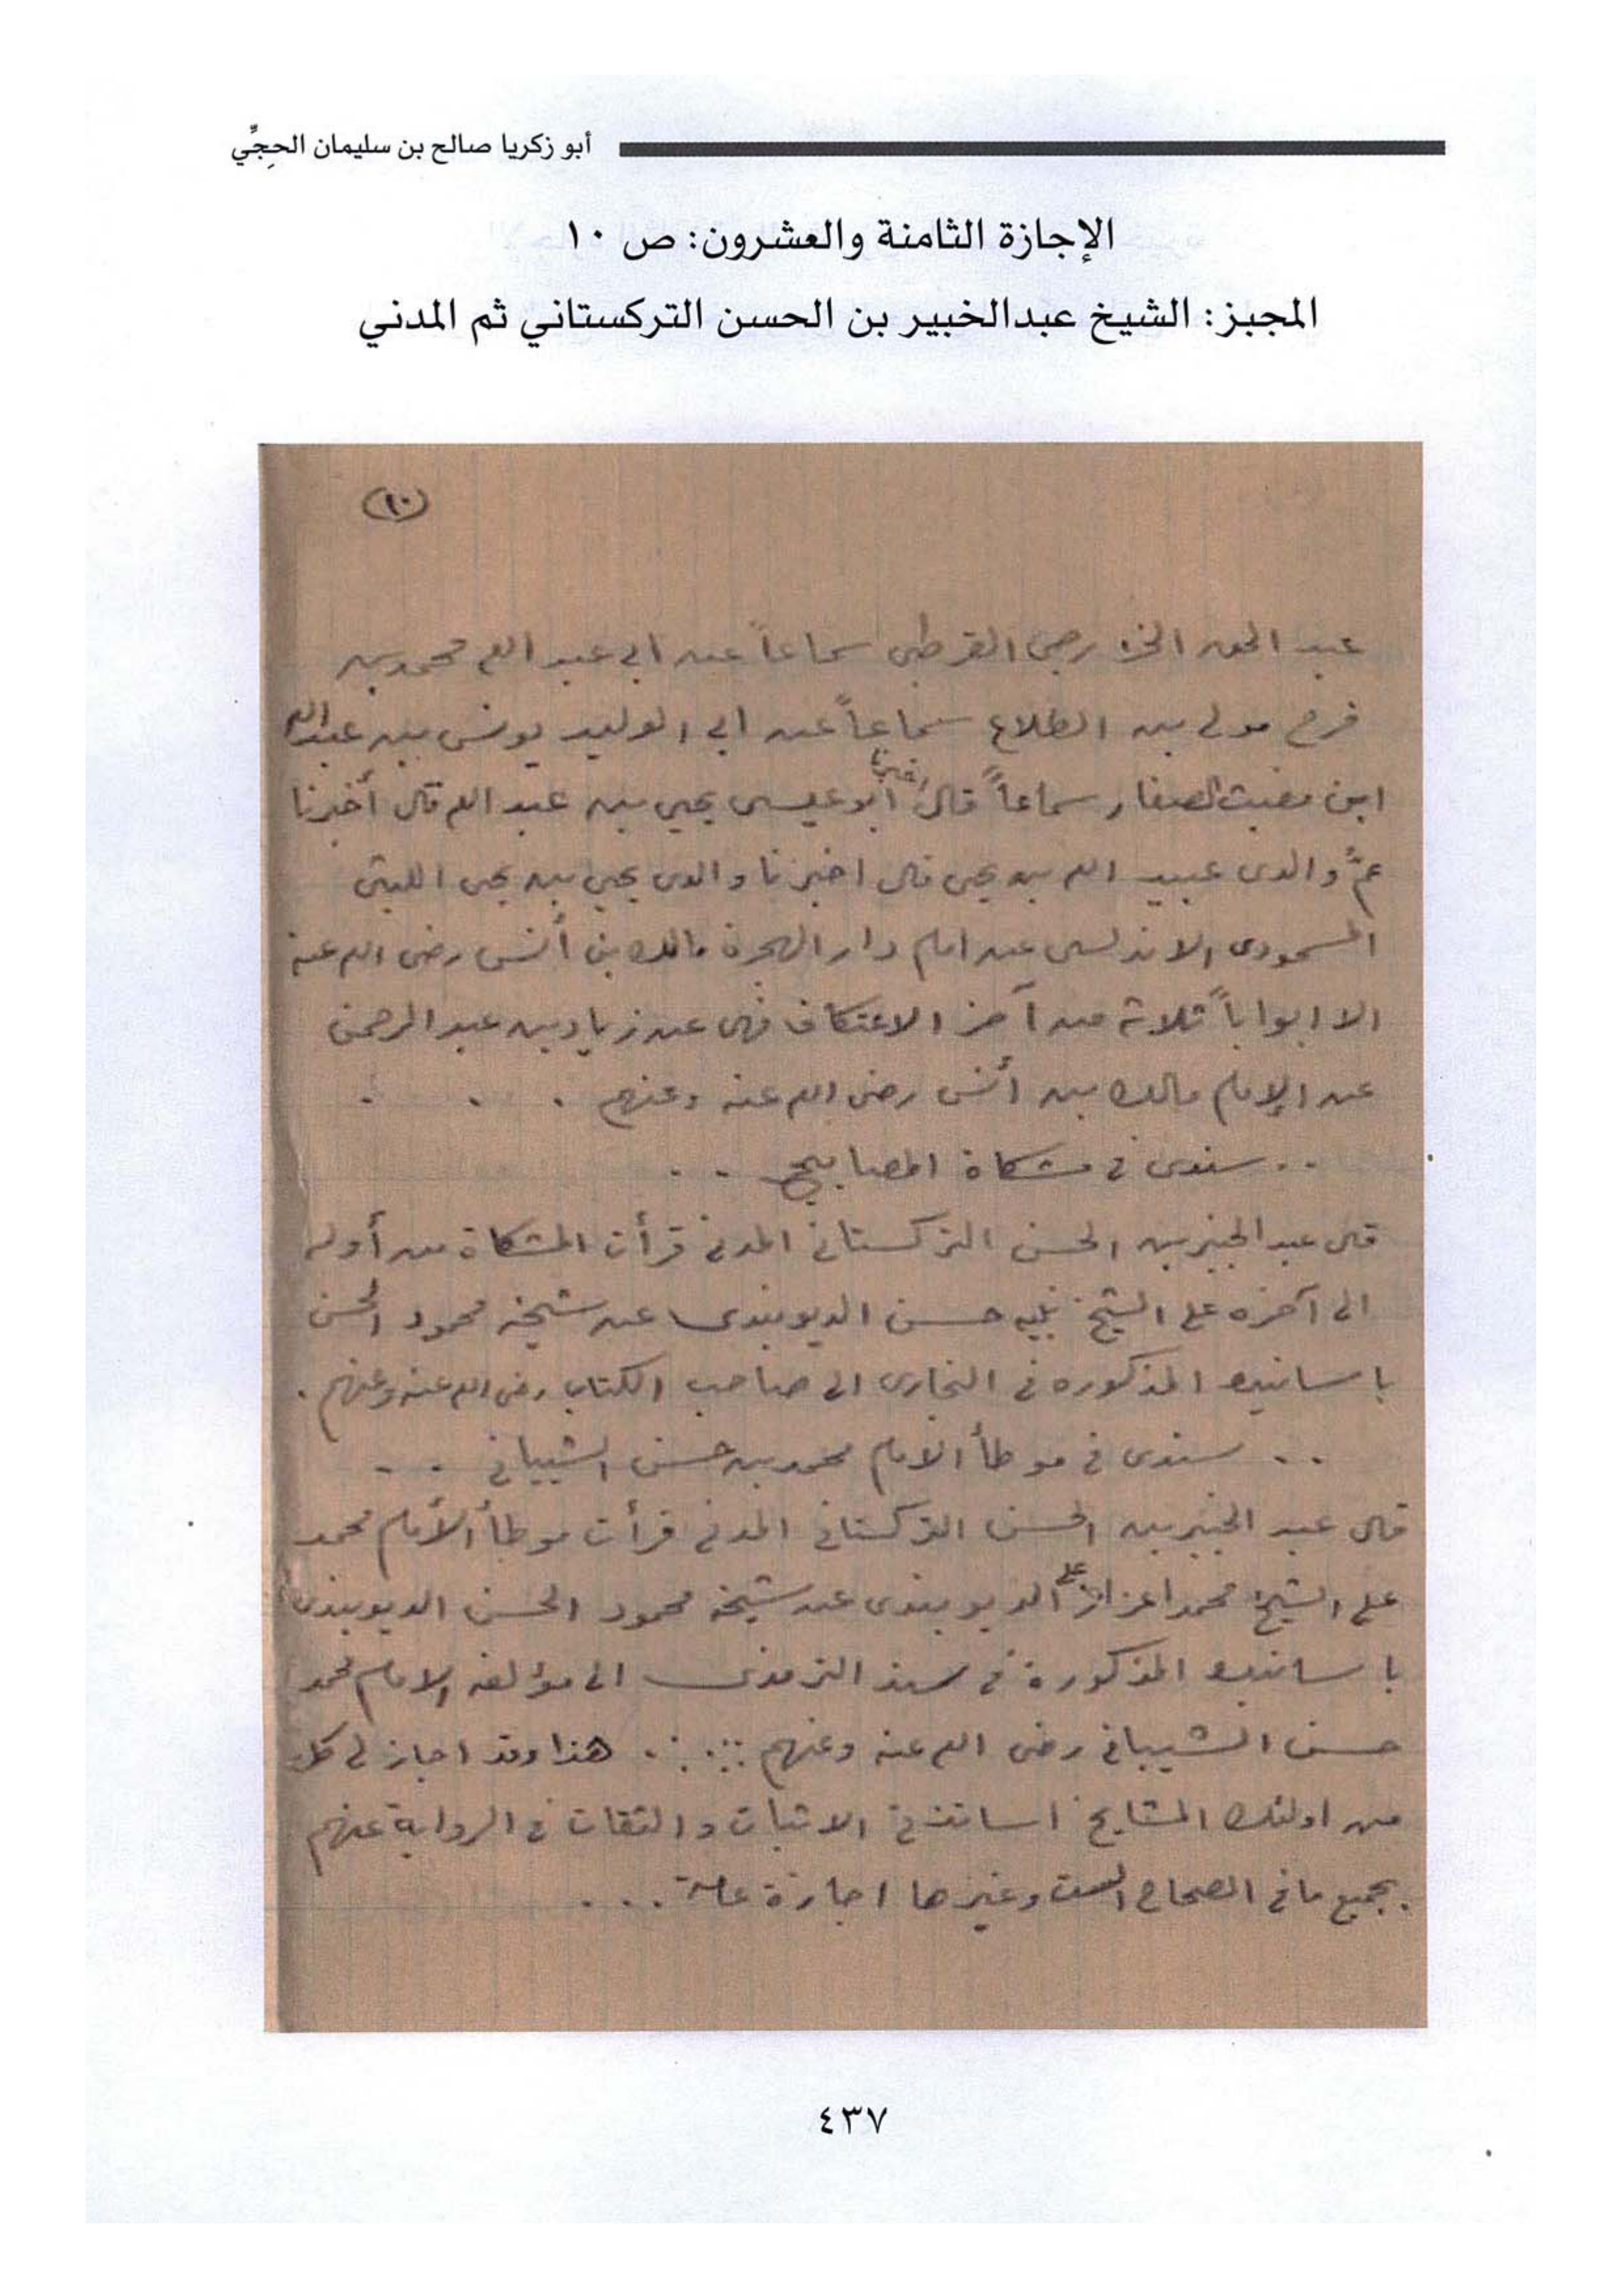 أبو زكريا صالح بن سليمان الحجِّي
الإجازة الثامنة والعشرون: ص ١٠
المجبز: الشيخ عبدالخبير بن الحسن التركستاني ثم المدني
(١٠)
عبد الحق الخزرجى القرطبى سماعاً عن ابى عبد الله محمد بن
فرج مولى بن الطلاع سماعاً عن ابى الوليد يونس بن عبد الله
ابن مغيث الصفار سماعاً قال ابو عيسى يحيى بن عبد الله قال أخبرنا
عمُّ والدى عبيد الله بن يحيى قال اخبرنا والدى يحيى بن يحيى الليثى
المسمودى الاندلسى عن امام دار الهجرة مالك بن أنس رضى الله عنه
الا ابواباً ثلاثة من آخر الاعتكاف فهى عن زياد بن عبد الرحمن
عن الإمام مالك بن أنس رضى الله عنه وعنهم . . .
.. سندى فى مشكاة المصابيح . .
قال عبد الخبير بن الحسن التركستانى المدنى قرأت المشكاة من أوله
الى آخره على الشيخ نبيه حسن الديوبندى عن شيخه محمود الحسن
باسانيده المذكوره فى البخارى الى صاحب الكتاب رضى الله عنه وعنهم .
.. سندى فى موطأ الامام محمد بن حسن الشيبانى . .
قال عبد الخبير بن الحسن التركستانى المدنى قرأت موطأ الأمام محمد
على الشيخ محمد اعزاز على الديوبندى عن شيخه محمود الحسن الديوبندى
باسانيده المذكورة فى سند الترمذى الى مؤلفه الامام محمد
حسن الشيبانى رضى الله عنه وعنهم . هذا وقد اجاز لى كل
من اولئك المشايخ اساتذتى الاثبات والثقات فى الرواية عنهم
بجميع ما فى الصحاح الست وغيرها اجازة عامة . . .
٤٣٧